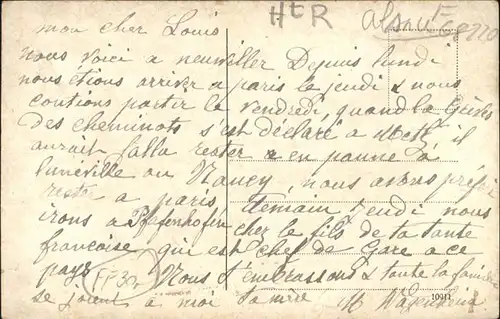 HtR
Alsace 68220
mon cher Louis
nous voici a neuviller Depuis lundi
nous etions arriver a paris le jeudi & nous
contions partir le vendredi, quand la Grèves
des cheminots s'est déclaré a Metz il
aurait falla rester en panne à
lunéville ou Nancy, nous avons préféré
rester a paris, demain jeudi nous
irons a Pfafenhofen chez le fils de ta tante
francoise qui est chef de Gare a ce
pays Nous t'embrassons & toute la famille
se joient a moi ta mère
FF30
10011